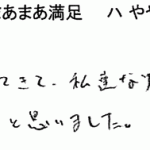 まあまあ満足 ハ やや
てきて、私達な
と思いました。